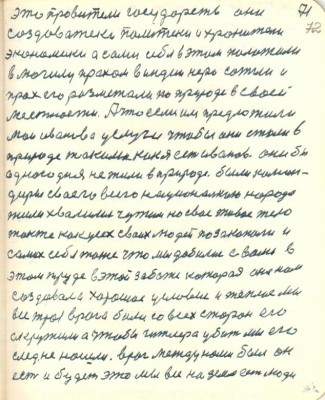 71
72
это правители государств они
создователи политики и хранители
экономики а сами себя в этом положили
в могилу прахом в индии неро сожгли и
прах его разметали по природе в своей
местности. А что если им предложили
мои иванова услуги чтобы они стали в
природе такими как я есть иванов. они бы
одного дня не жили в природе были коман-
диры своего всего национального народа
жили хвалились чужим но свое живое тело
также как усех своих людей позакопали и
самих себя тоже что мы добились с вами в
этом труде в этой заботе которая она нам
создавала хорошие условие и теплые мы
все троя врага были со всех сторон его
окружили а чтобы гитлера убить мы его
след не нашли. враг между нами был он
есть и будет это мы все на земле есть люди